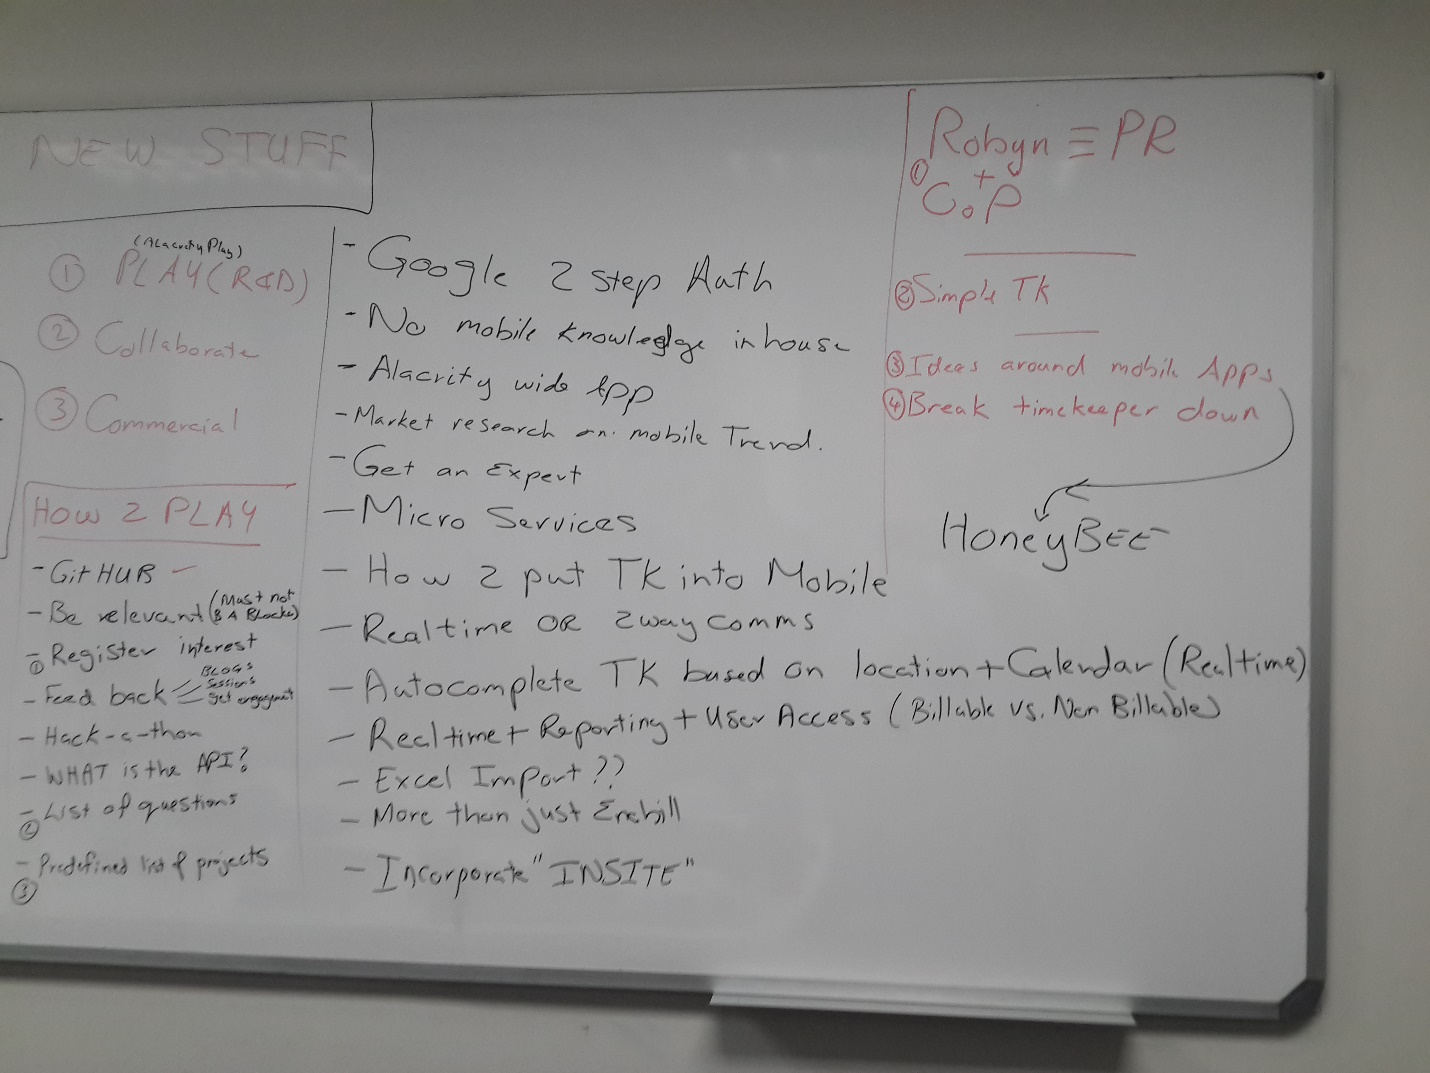 NEW STUFF
(Alacrity Play)
① PLAY (R&D)
② Collaborate
③ Commercial
HOW 2 PLAY
- GitHUB -
- Be relevant (Must not
B A Blocke)
- Register interest
①
BLOGS
- Feed back Sessions
get engagment
- Hack-a-thon
- WHAT is the API?
- List of questions
②
- Predefined list of projects
③
- Google 2 step Auth
- No mobile knowledge inhouse
- Alacrity wide App
- Market research on mobile Trend.
- Get an Expert
- Micro Services
- How 2 put TK into Mobile
- Realtime OR 2way comms
- Autocomplete TK based on location + Calendar (Realtime)
- Realtime + Reporting + User Access (Billable vs. Non Billable)
- Excel Import ??
- More than just
- Incorporate "INSITE"
Robyn ≡ PR
① +
CoP
② Simple TK
③ Ideas around mobile Apps
④ Break timekeeper down
HoneyBEE